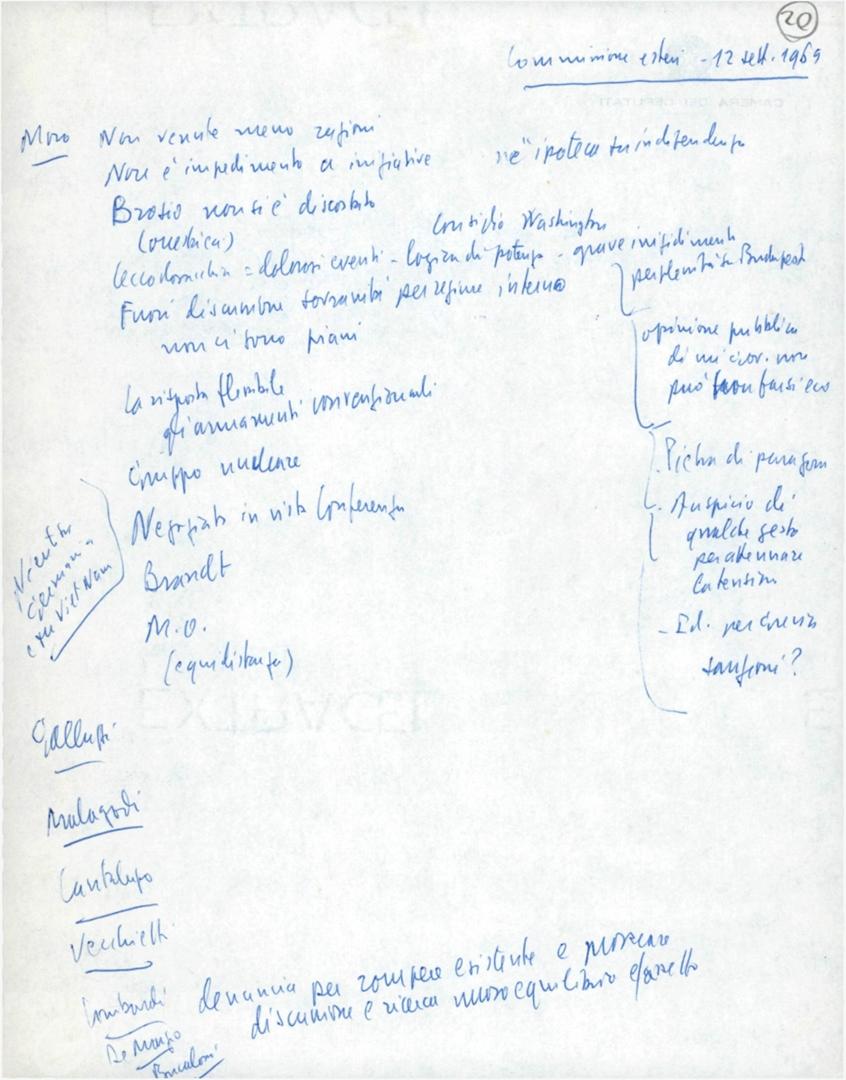 20
Commissione esteri - 12 sett. 1969
CAMERA DEI DEPUTATI
Moro Non venute meno ragioni
Non è impedimento a iniziative nè ipoteca su indipendenza
Brosio non si è discostato
(ortodossia)
Consiglio Washington
Cecoslovacchia = dolorosi eventi - logica di potenza - grave
perplessità su Budapest
Fuori discussione sovranità per regime interno
non ci sono piani
opinione pubblica
di cui non
può non farsi eco
La risposta flessibile
gli armamenti convenzionali
Gruppo nucleare
Pietra di paragone
Negoziato in vista Conferenza
- Auspicio di
qualche gesto
per attenuare
la tensione
Brandt
M.O.
(equidistanza)
- Id. per Grecia
sanzioni?
Germania
e su Viet Nam
Galluzzi
Malagodi
Cantalupo
Vecchietti
Lombardi denuncia per rompere esistente e provocare
discussione e ricerca nuovo equilibrio e assetto
De Marzio